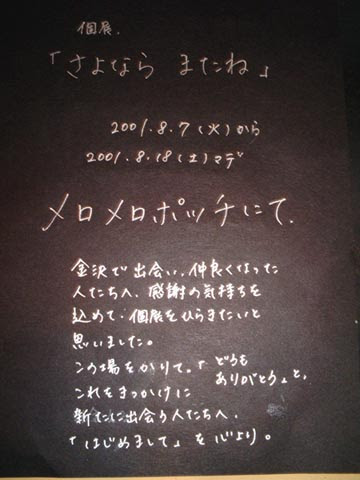 個展.
「さよなら またね」
2001.8.7(火)から
2001.8.18(土)マデ
メロメロポッチにて.
金沢で出会い、仲良くなった
人たちへ、感謝の気持ちを
込めて・個展をひらきたいと
思いました。
この場をかりて。「どうも
ありがとう」と、
これをきっかけに
新たに出会う人たちへ、
「はじめまして」を心より。